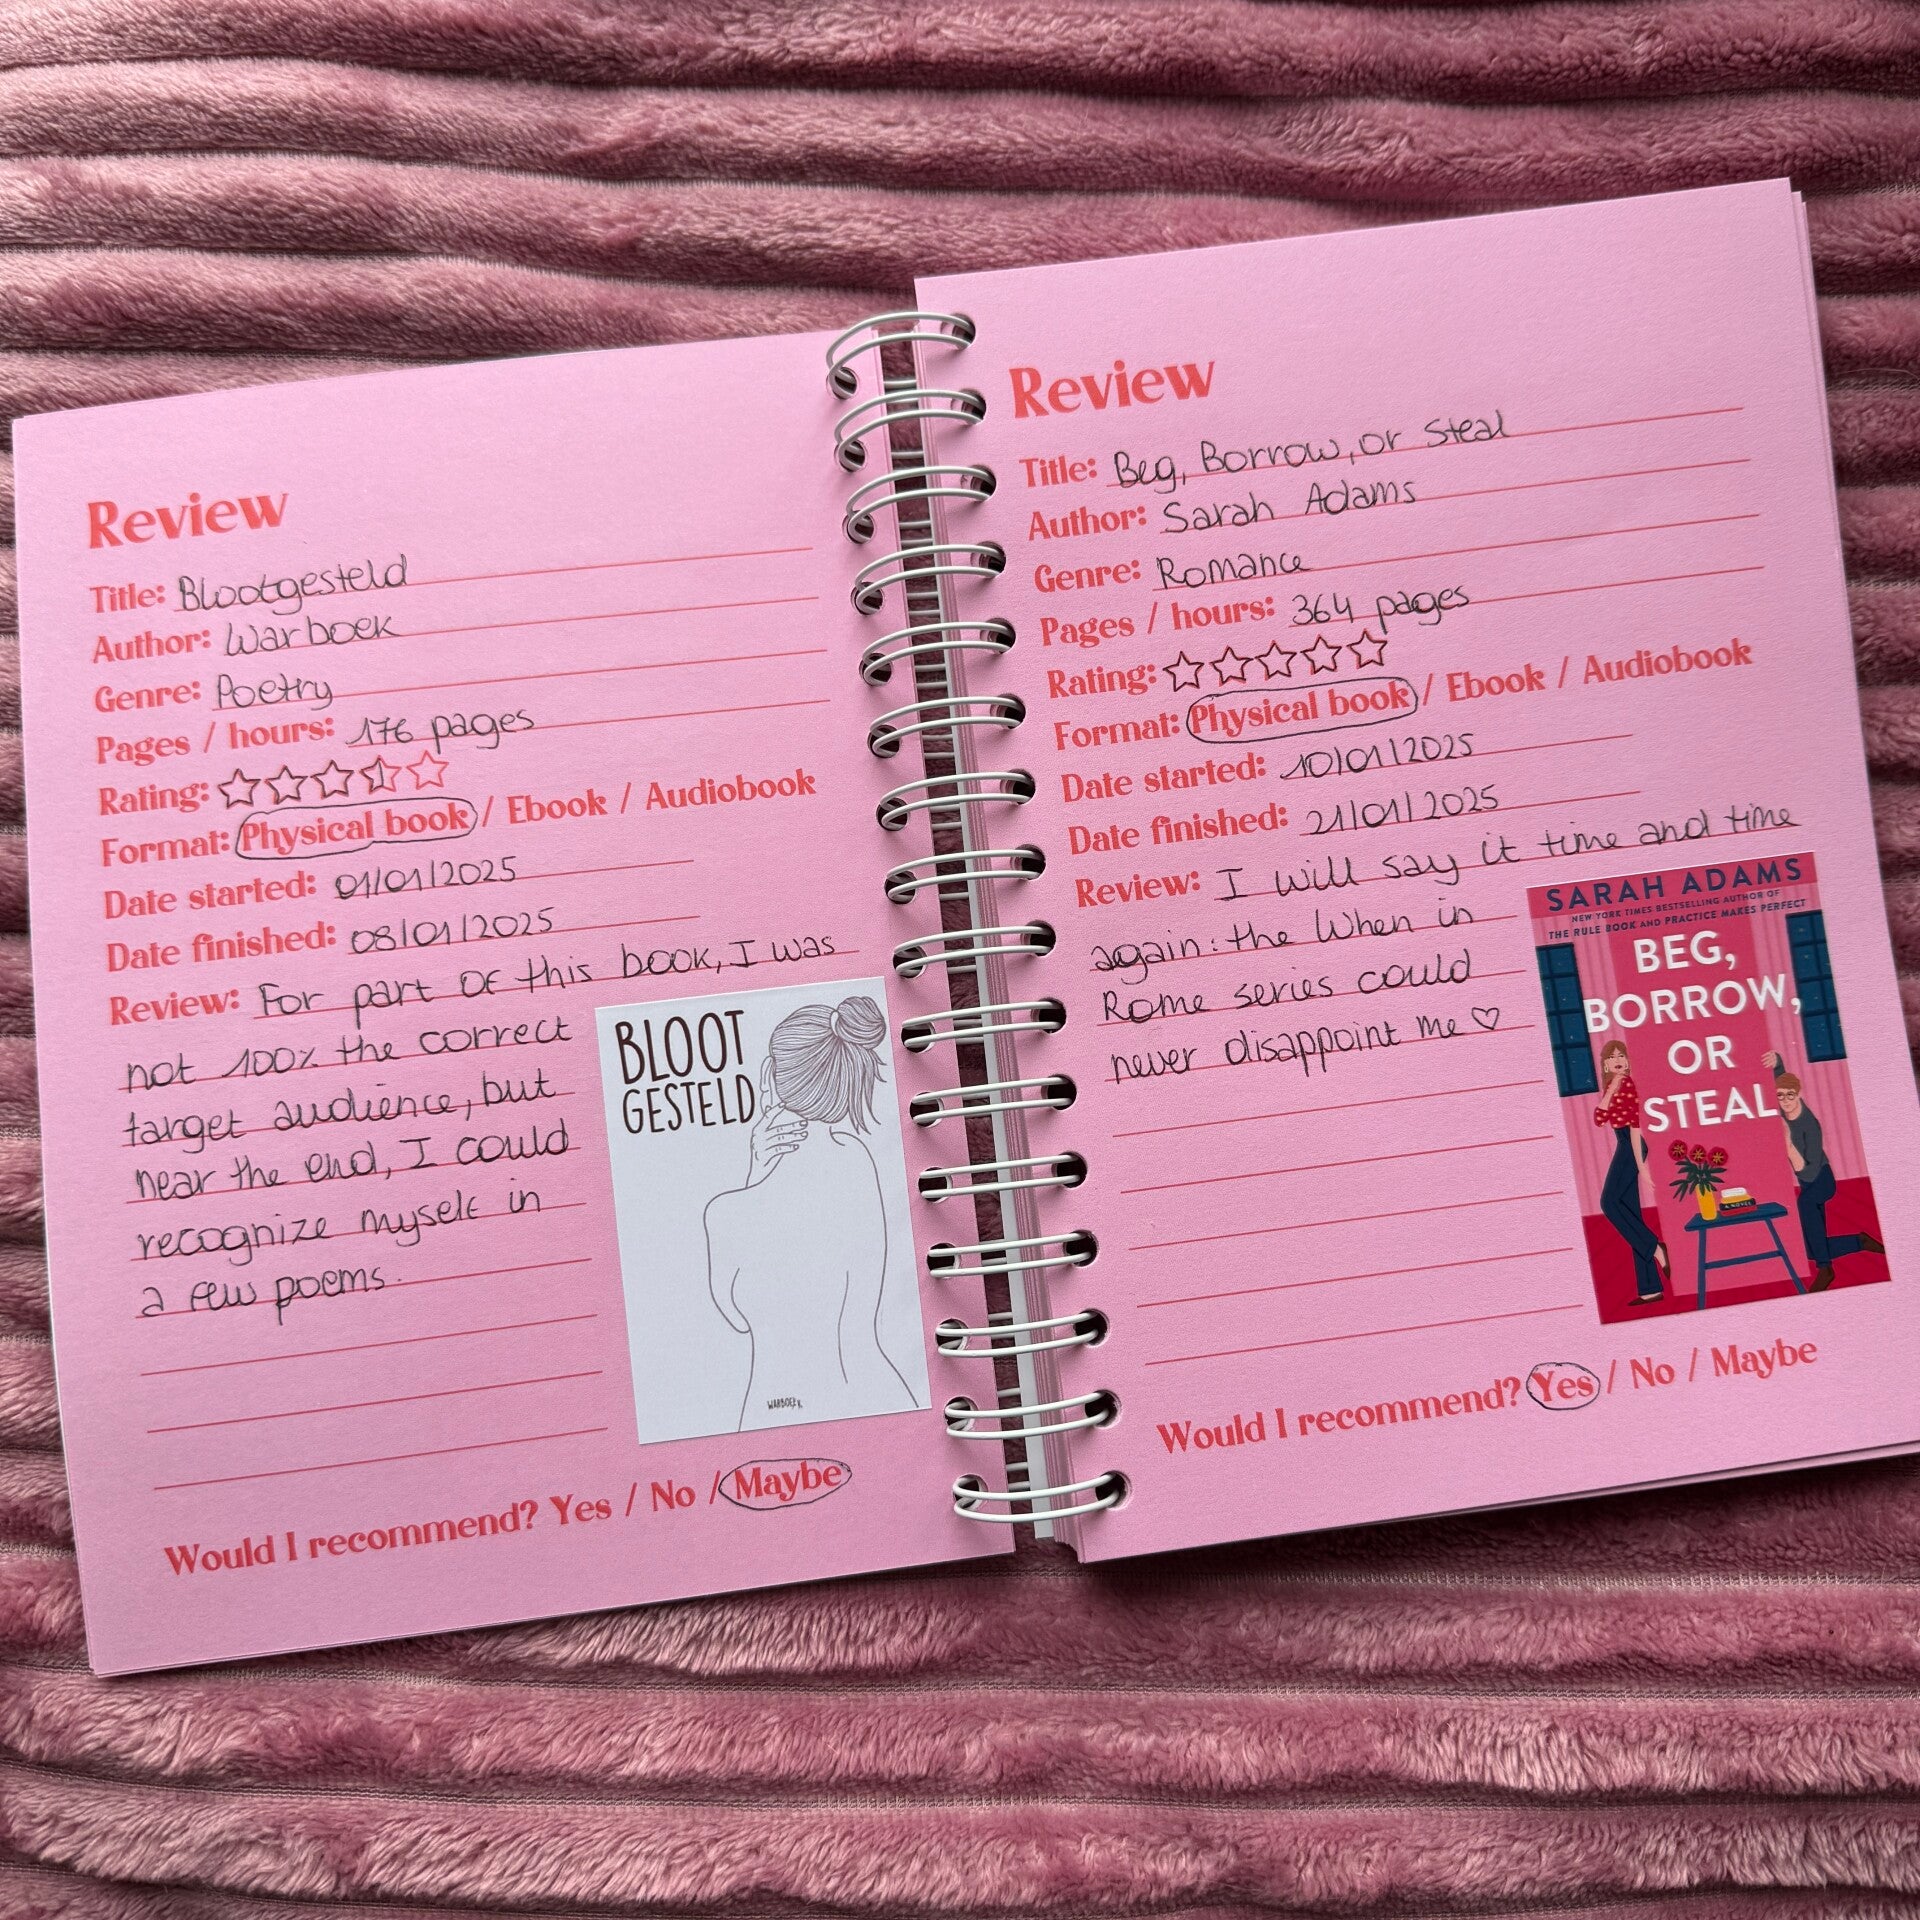 Review
Title: Blootgesteld
Author: Warboek
Genre: Poetry
Pages / hours: 176 pages
Rating:
Format: Physical book / Ebook / Audiobook
Date started: 01/01/2025
Date finished: 08/01/2025
Review: For part of this book, I was
not 100% the correct
target audience, but
near the end, I could
recognize myself in
a few poems.
BLOOT
GESTELD
WARBOEK
Would I recommend? Yes / No / Maybe
Review
Title: Beg, Borrow, or Steal
Author: Sarah Adams
Genre: Romance
Pages / hours: 364 pages
Rating:
Format: Physical book / Ebook / Audiobook
Date started: 10/01/2025
Date finished: 21/01/2025
Review: I will say it time and time
again: the When in
Rome series could
never disappoint me ♡
SARAH ADAMS
NEW YORK TIMES BESTSELLING AUTHOR OF
THE RULE BOOK AND PRACTICE MAKES PERFECT
BEG,
BORROW,
OR
STEAL
A NOVEL
Would I recommend? Yes / No / Maybe